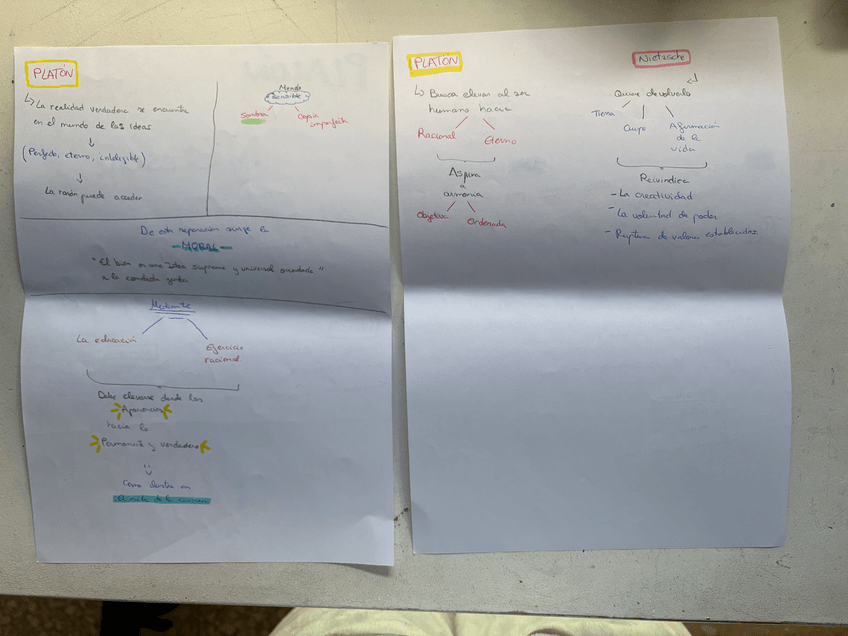 PLATÓN
↳ La realidad verdadera se encuentra
en el mundo de las ideas
↓
(Perfecto, eterno, inteligible)
↓
La razón puede acceder
Mundo
sensible
Sombra
Copia
imperfecta
De esta separación surge la
- MORAL -
"El bien es una idea suprema y universal
a la conducta justa
Mediante
La educación
Ejercicio
racional
Debe elevarse desde las
Apariencias
hacia lo
Permanente y verdadero
Como ilustra en
el mito de la caverna
PLATÓN
↳ Busca elevar al ser
humano hacia
Racional
Eterno
Aspira
a
armonía
Objetiva
Ordenada
Nietzsche
Quiere devolverlo
Tierra
Cuerpo
Afirmación
de la
vida
Reivindica
- La creatividad
- La voluntad de poder
- Ruptura de valores establecidos